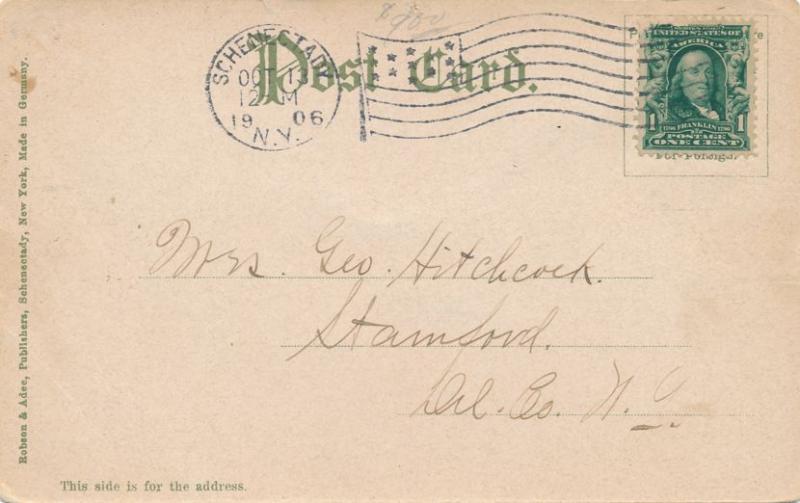 Post Card.
SCHENECTADY
OCT 13
12 M
1906
N.Y.
UNITED STATES OF
AMERICA
1 1
1706 FRANKLIN 1790
POSTAGE
ONE CENT
For Foreign.
Mrs. Geo. Hitchcock.
Stamford.
Del. Co. N.Y.
Robson & Adee, Publishers, Schenectady, New York, Made in Germany.
This side is for the address.